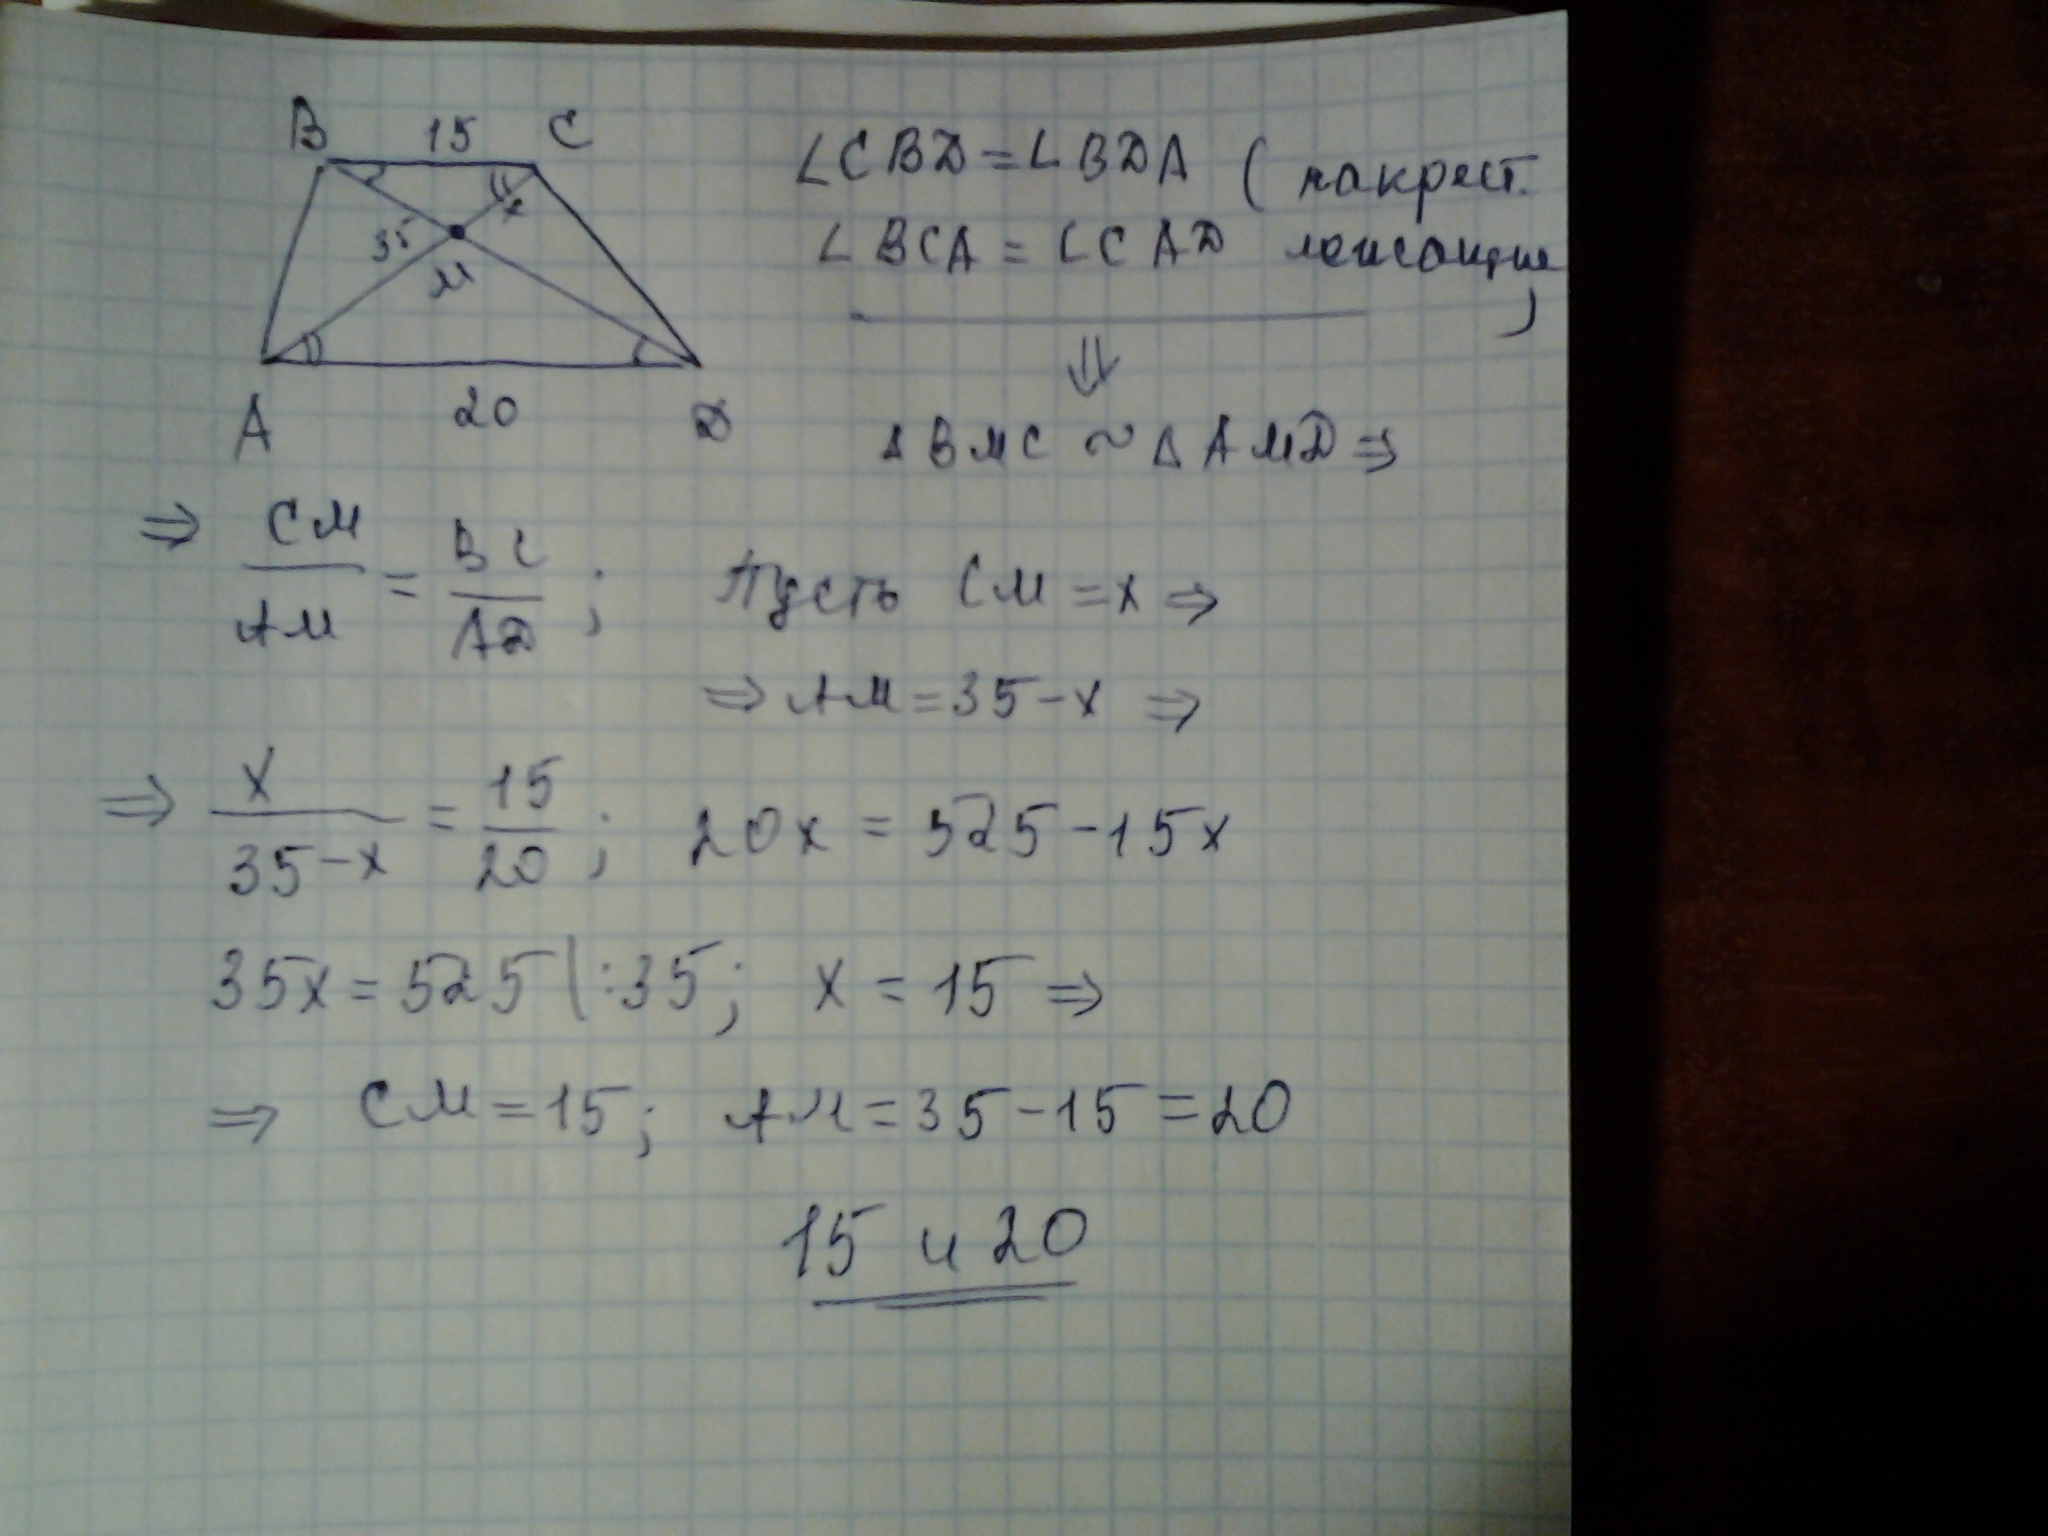 B 15 C
x
35
M
A 20 D
∠CBD = ∠BDA (накрест.
∠BCA = ∠CAD лежащие)
⇓
ΔBMC ~ ΔAMD ⇒
⇒ CM/AM = BC/AD; Пусть CM = x ⇒
⇒ AM = 35 - x ⇒
⇒ x/(35-x) = 15/20; 20x = 525 - 15x
35x = 525 |:35; x = 15 ⇒
⇒ CM = 15; AM = 35 - 15 = 20
15 и 20